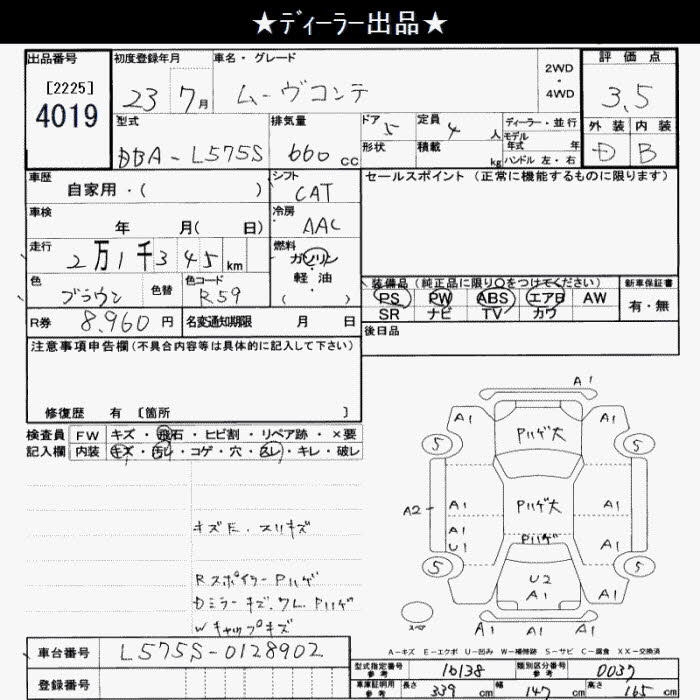 ★ディーラー出品★
出品番号
[2225]
4019
初度登録年月
23 7月
車名・グレード
ムーヴコンテ
2WD
・
4WD
評価点
3,5
外装 内装
D B
型式
DBA-L575S
排気量
660 cc
ドア 5
形状
定員 4 人
積載 kg
ディーラー・並行
モデル年式 年
ハンドル 左・右
車歴
自家用・( )
シフト
CAT
セールスポイント (正常に機能するものに限ります)
車検
年 月( 日)
冷房
AAC
走行
2万1千345 km
燃料
ガソリン
・
軽・油
( )
色
ブラウン
色替
色コード
R59
装備品 (純正品に限り〇をつけてください)
PS PW ABS エアB AW
SR ナビ TV カワ
新車保証書
有・無
R券 8,960 円
名変通知期限 月 日
後日品
注意事項申告欄 (不具合内容等は具体的に記入して下さい)
修復歴 有 [箇所 ]
検査員記入欄
FW キズ・飛石・ヒビ割・リペア跡・×要
内装 キズ・汚レ・コゲ・穴・スレ・キレ・破レ
キズE.スリキズ
RスポイラーPハゲ
Dミラーキズ.ワレ.Pハゲ
Wキャップキズ
A1
A1 Pハゲ大 A1
5 5
A2 A1 Pハゲ大 A1
A1
U1 Pハゲ A1
5 5
U2
A1
スペア
A1 A1 A1
A-キズ E-エクボ U-凹み W-補修跡 S-サビ C-腐食 XX-交換済
車台番号 L575S-0128902
登録番号
型式指定番号 参考 16138
類別区分番号 参考 0037
車庫証明用 参考 長さ 339 cm 幅 147 cm 高さ 165 cm